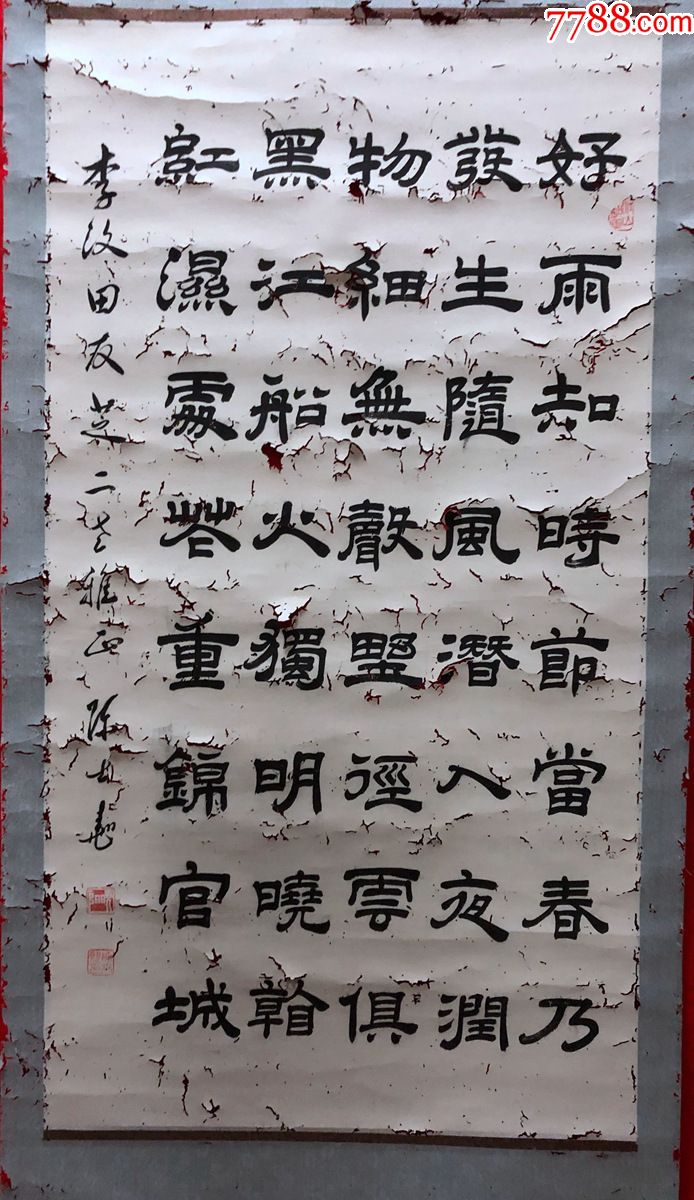 7788.com
好雨知時節當春乃
發生隨風潛入夜潤
物細無聲野徑雲俱
黑江船火獨明曉看
紅濕處花重錦官城
李田友芝二老雅正 陈